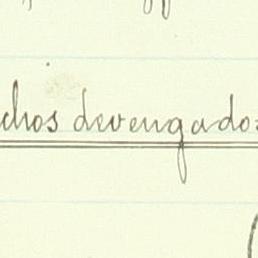 chos devengados